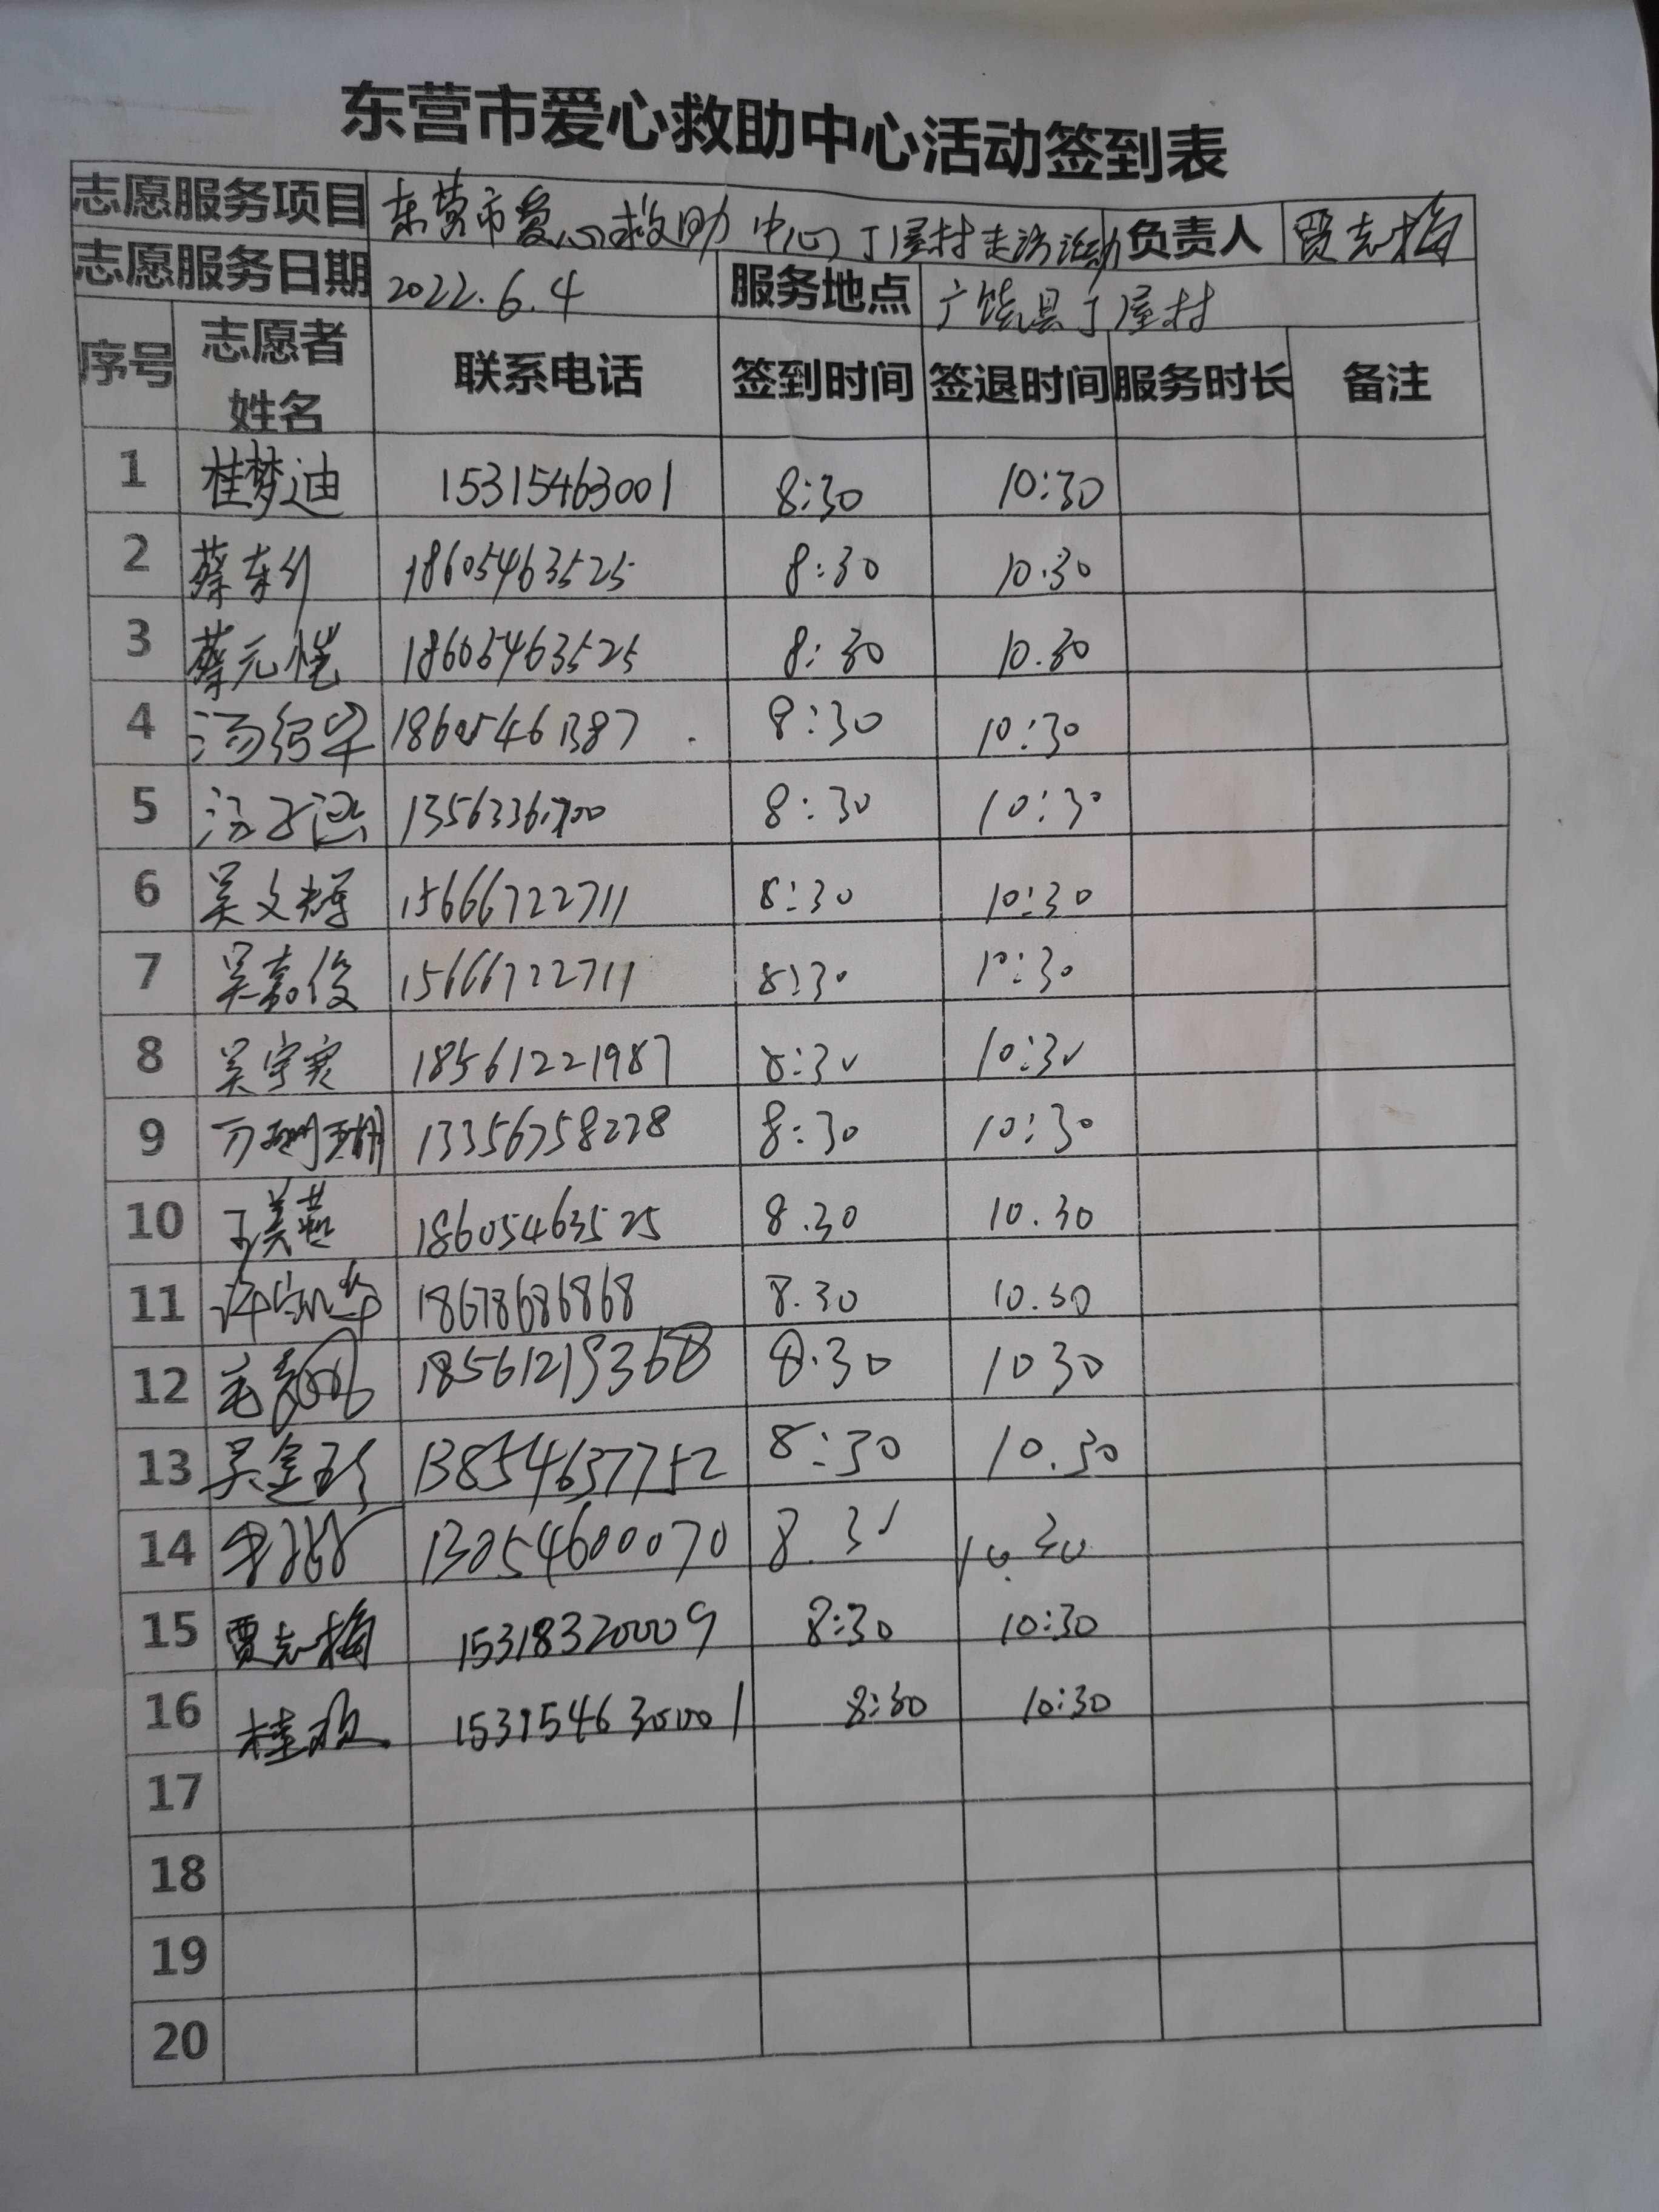 东营市爱心救助中心活动签到表
志愿服务项目 东营市爱心救助中心丁屋村走访活动 负责人 贾志梅
志愿服务日期 2022.6.4 服务地点 广饶县丁屋村
序号 志愿者姓名 联系电话 签到时间 签退时间 服务时长 备注
1 桂梦迪 15315463001 8:30 10:30
2 蔡东升 18605463525 8:30 10.30
3 蔡元恺 18605463525 8:30 10.30
4 汤绍军 18605461387 8:30 10:30
5 8:30 10:30
6 吴文辉 15666722711 8:30 10:30
7 吴嘉俊 15666722711 8:30 10:30
8 吴宇寞 18561221987 8:30 10:30
9 万珊珊 13356758228 8:30 10:30
10 美燕 18605463525 8.30 10.30
11 18678686868 8.30 10.30
12 18561219368 8.30 10 30
13 吴金珍 13854637752 8:30 10.30
14 13054600070 8.30 10.30
15 贾志梅 15318320009 8:30 10:30
16 桂 8:30 10:30
17
18
19
20